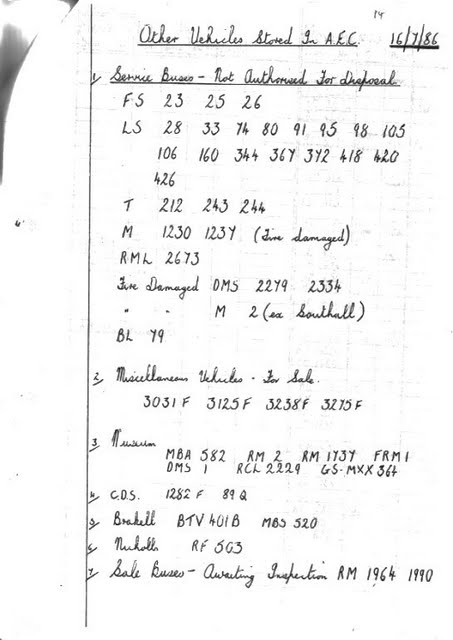 14
Other Vehicles Stored In A.E.C. 16/7/86
1, Service Buses - Not Authorised For Disposal
FS 23 25 26
LS 28 33 74 80 91 95 98 105
106 160 344 367 372 418 420
426
T 212 243 244
M 1230 1237 (Fire damaged)
RML 2673
Fire Damaged DMS 2279 2334
" " M 2 (ex Southall)
BL 79
2, Miscellaneous Vehicles - For Sale.
3031 F 3125 F 3238 F 3275 F
3, Museum
MBA 582 RM 2 RM 1737 FRM 1
DMS 1 RCL 2229 GS-MXX 364
4, C.D.S. 1282 F 89 Q
5, Brakell BTV 401 B MBS 520
6, Nicholls RF 503
7, Sale Buses - Awaiting Inspection RM 1964 1990